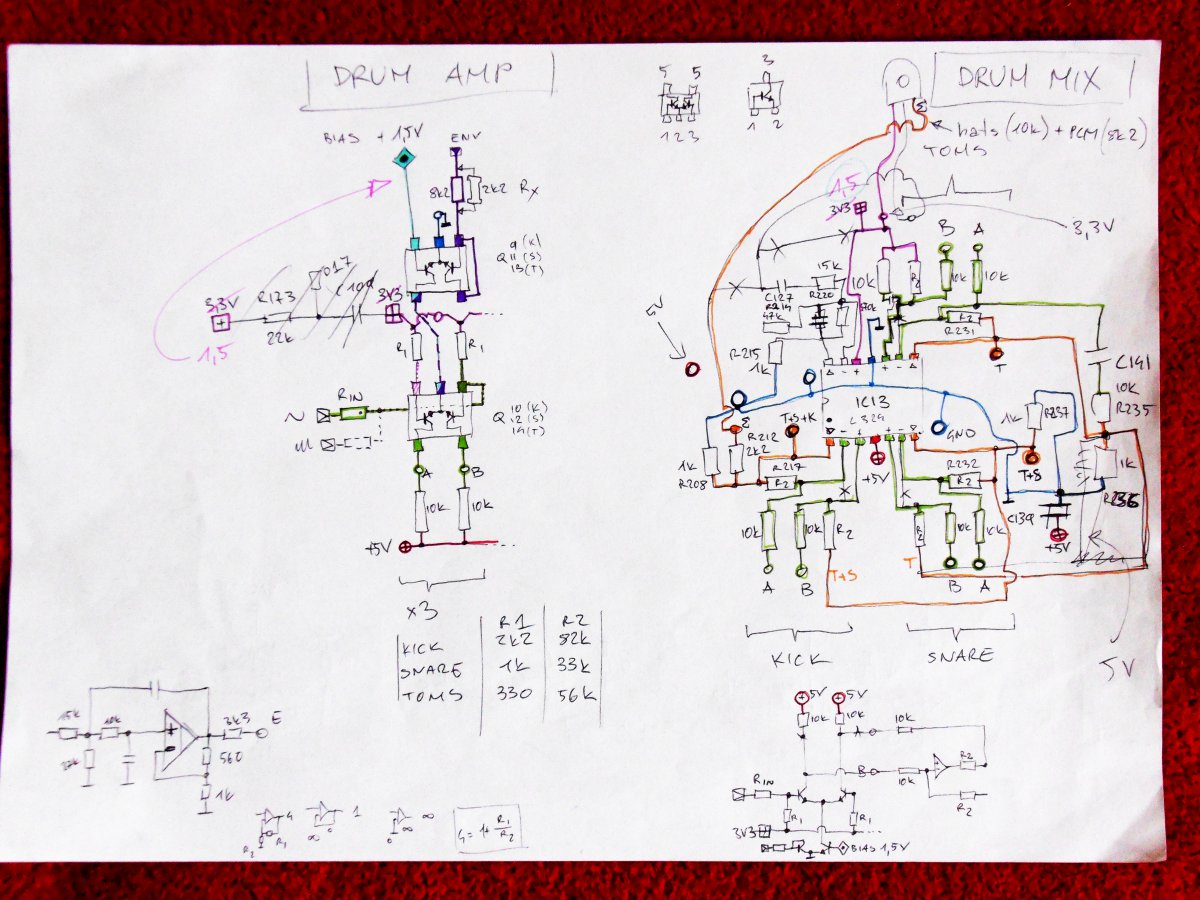 DRUM AMP
BIAS +1,5V
ENV
8k2
2k2 Rx
9 (K)
Q 11 (S)
13 (T)
3,3V
R173
22k
3V3
1,5
R1
R1
RIN
10 (K)
Q 12 (S)
14 (T)
A
B
10k
10k
+5V
x3
R1 R2
KICK 2k2 82k
SNARE 1k 33k
TOMS 330 56k
15k
10k
3k3
E
560
1k
R2
R1
1
∞
∞
G = 1 + R1/R2
5 5
1 2 3
3
1 2
DRUM MIX
Σ
hats (10k) + PCM (8k2)
TOMS
1,5
3V3
3,3V
B A
15k
C127
R220
R219
47k
10k
R2
10k
10k
R2
R231
R215
1k
T
C141
10k
R235
5V
IC13
L324
Σ
T+S+K
GND
1k
R237
T+S
R212
2k2
1k
R208
R217
R2
+5V
R232
R2
1k
R236
C139
+5V
10k
10k
R2
R2
10k
10k
A B
T+S
T
B A
KICK
SNARE
5V
5V
5V
10k
10k
10k
A
B
10k
R2
R2
RIN
R1
R1
3V3
BIAS 1,5V